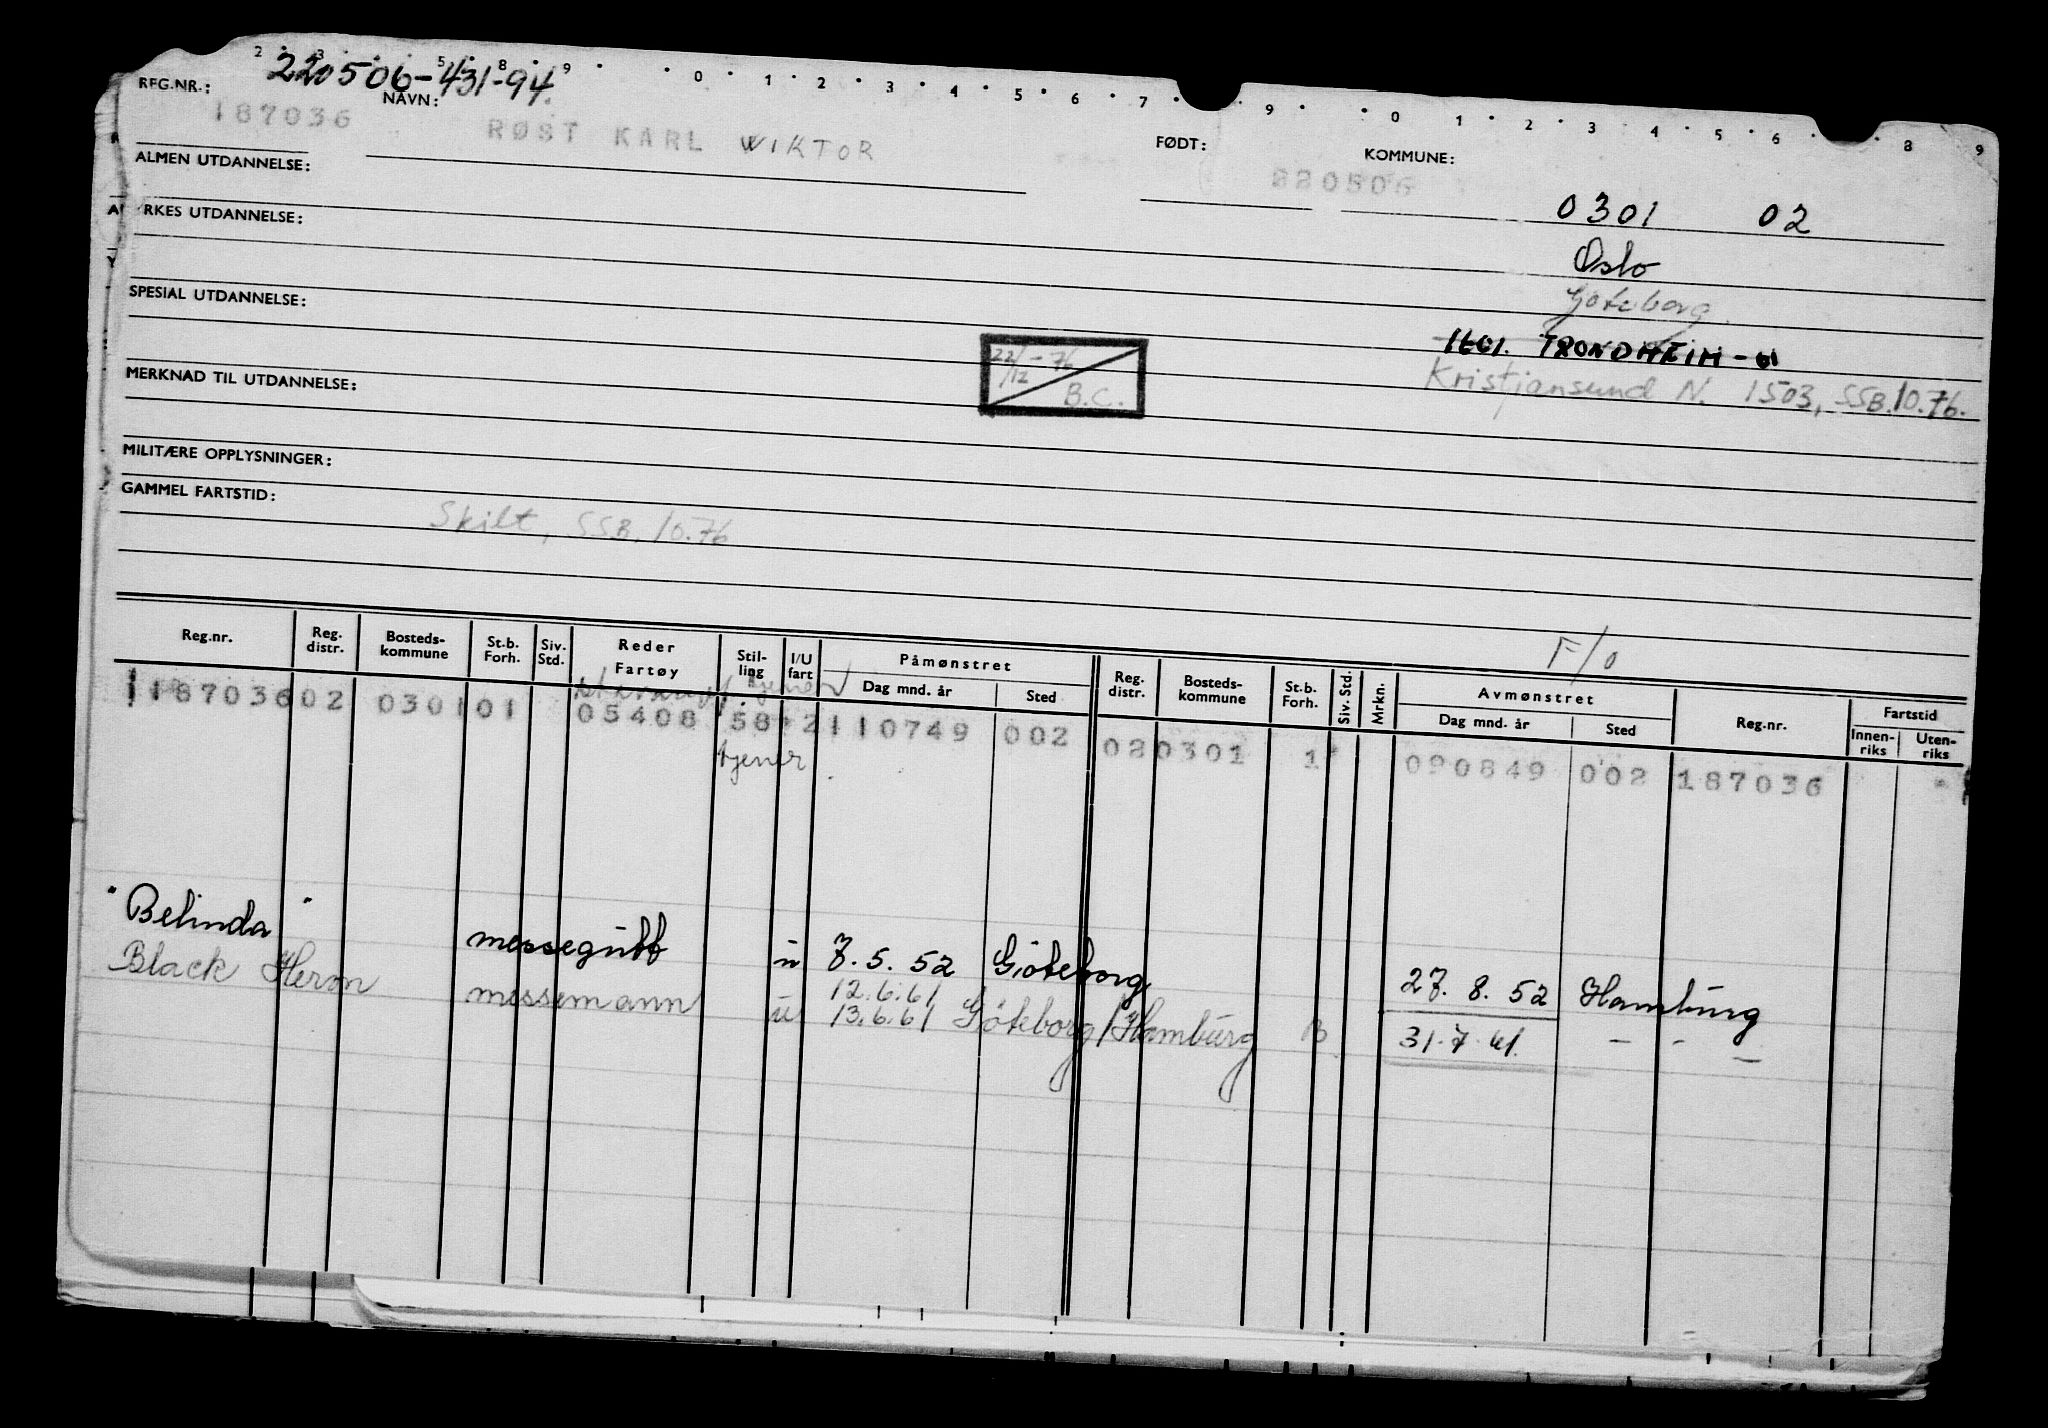 220506-431-94.
REG.NR.: 187036 NAVN: RØST KARL WIKTOR FØDT: 220506 KOMMUNE:
0301 02
ALMEN UTDANNELSE:
Oslo
RKES UTDANNELSE:
Göteborg.
SPESIAL UTDANNELSE:
1601. TRONDHEIM -
22/12 - 76 B.C.
Kristjansund N. 1503, SSB.10.76.
MERKNAD TIL UTDANNELSE:
MILITÆRE OPPLYSNINGER:
GAMMEL FARTSTID:
Skilt, SSB. 10.76
F/o
Reg.nr. Reg. distr. Bosteds-kommune St.b. Forh. Siv. Std. Reder Fartøy Stil-ling I/U fart Påmønstret Dag mnd. år Sted Reg. distr. Bosteds-kommune St.b. Forh. Siv. Std. Mrkn. Avmønstret Dag mnd. år Sted Reg.nr. Fartstid Innen-riks Uten-riks
187036 02 0301 01 05408 58 2 110749 002 02 0301 1 090849 002 187036
tjener
"Belinda" messegutt u 7.5.52 Göteborg 27.8.52 Hamburg
Black Heron messemann u 12.6.61
13.6.61 Göteborg/Hamburg B 31.7.61. - - -